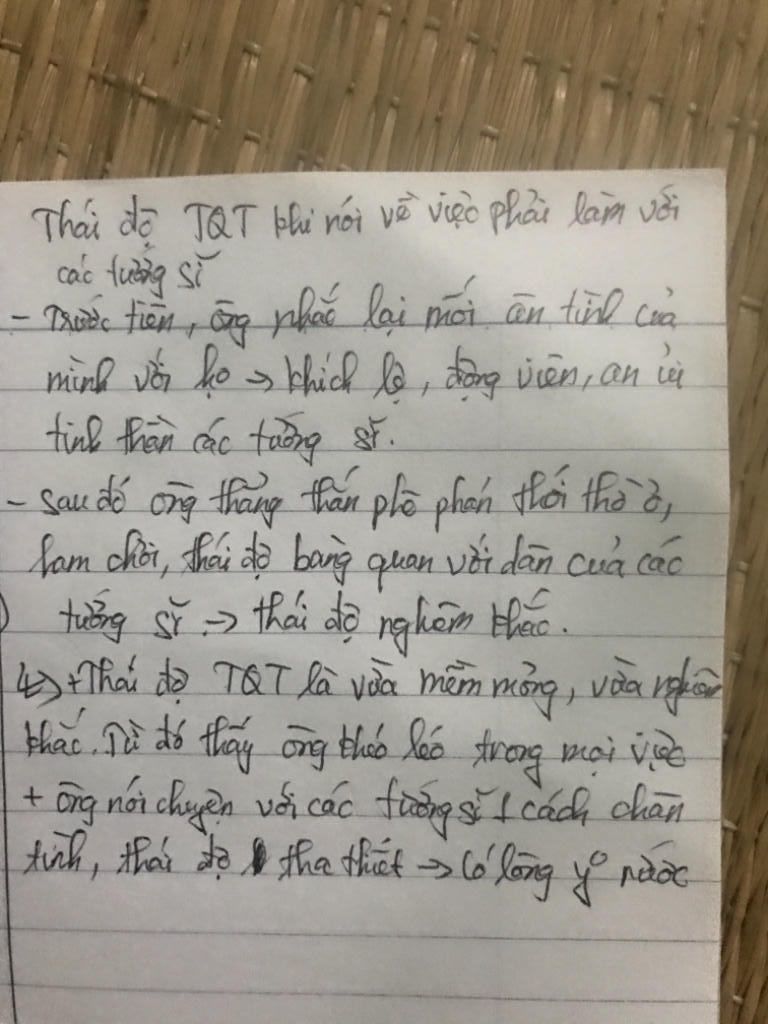 Thái độ TQT khi nói về việc phải làm với
các tướng sĩ
- Trước tiên, ông nhắc lại mối ân tình của
mình với họ → khích lệ, động viên, an ủi
tinh thần các tướng sĩ.
- Sau đó ông thẳng thắn phê phán thói thờ ơ,
ham chơi, thái độ bàng quan với dân của các
tướng sĩ → thái độ nghiêm khắc.
↳ + Thái độ TQT là vừa mềm mỏng, vừa nghiêm
khắc. Từ đó thấy ông khéo léo trong mọi việc
+ ông nói chuyện với các tướng sĩ 1 cách chân
tình, thái độ tha thiết → có lòng y° nước